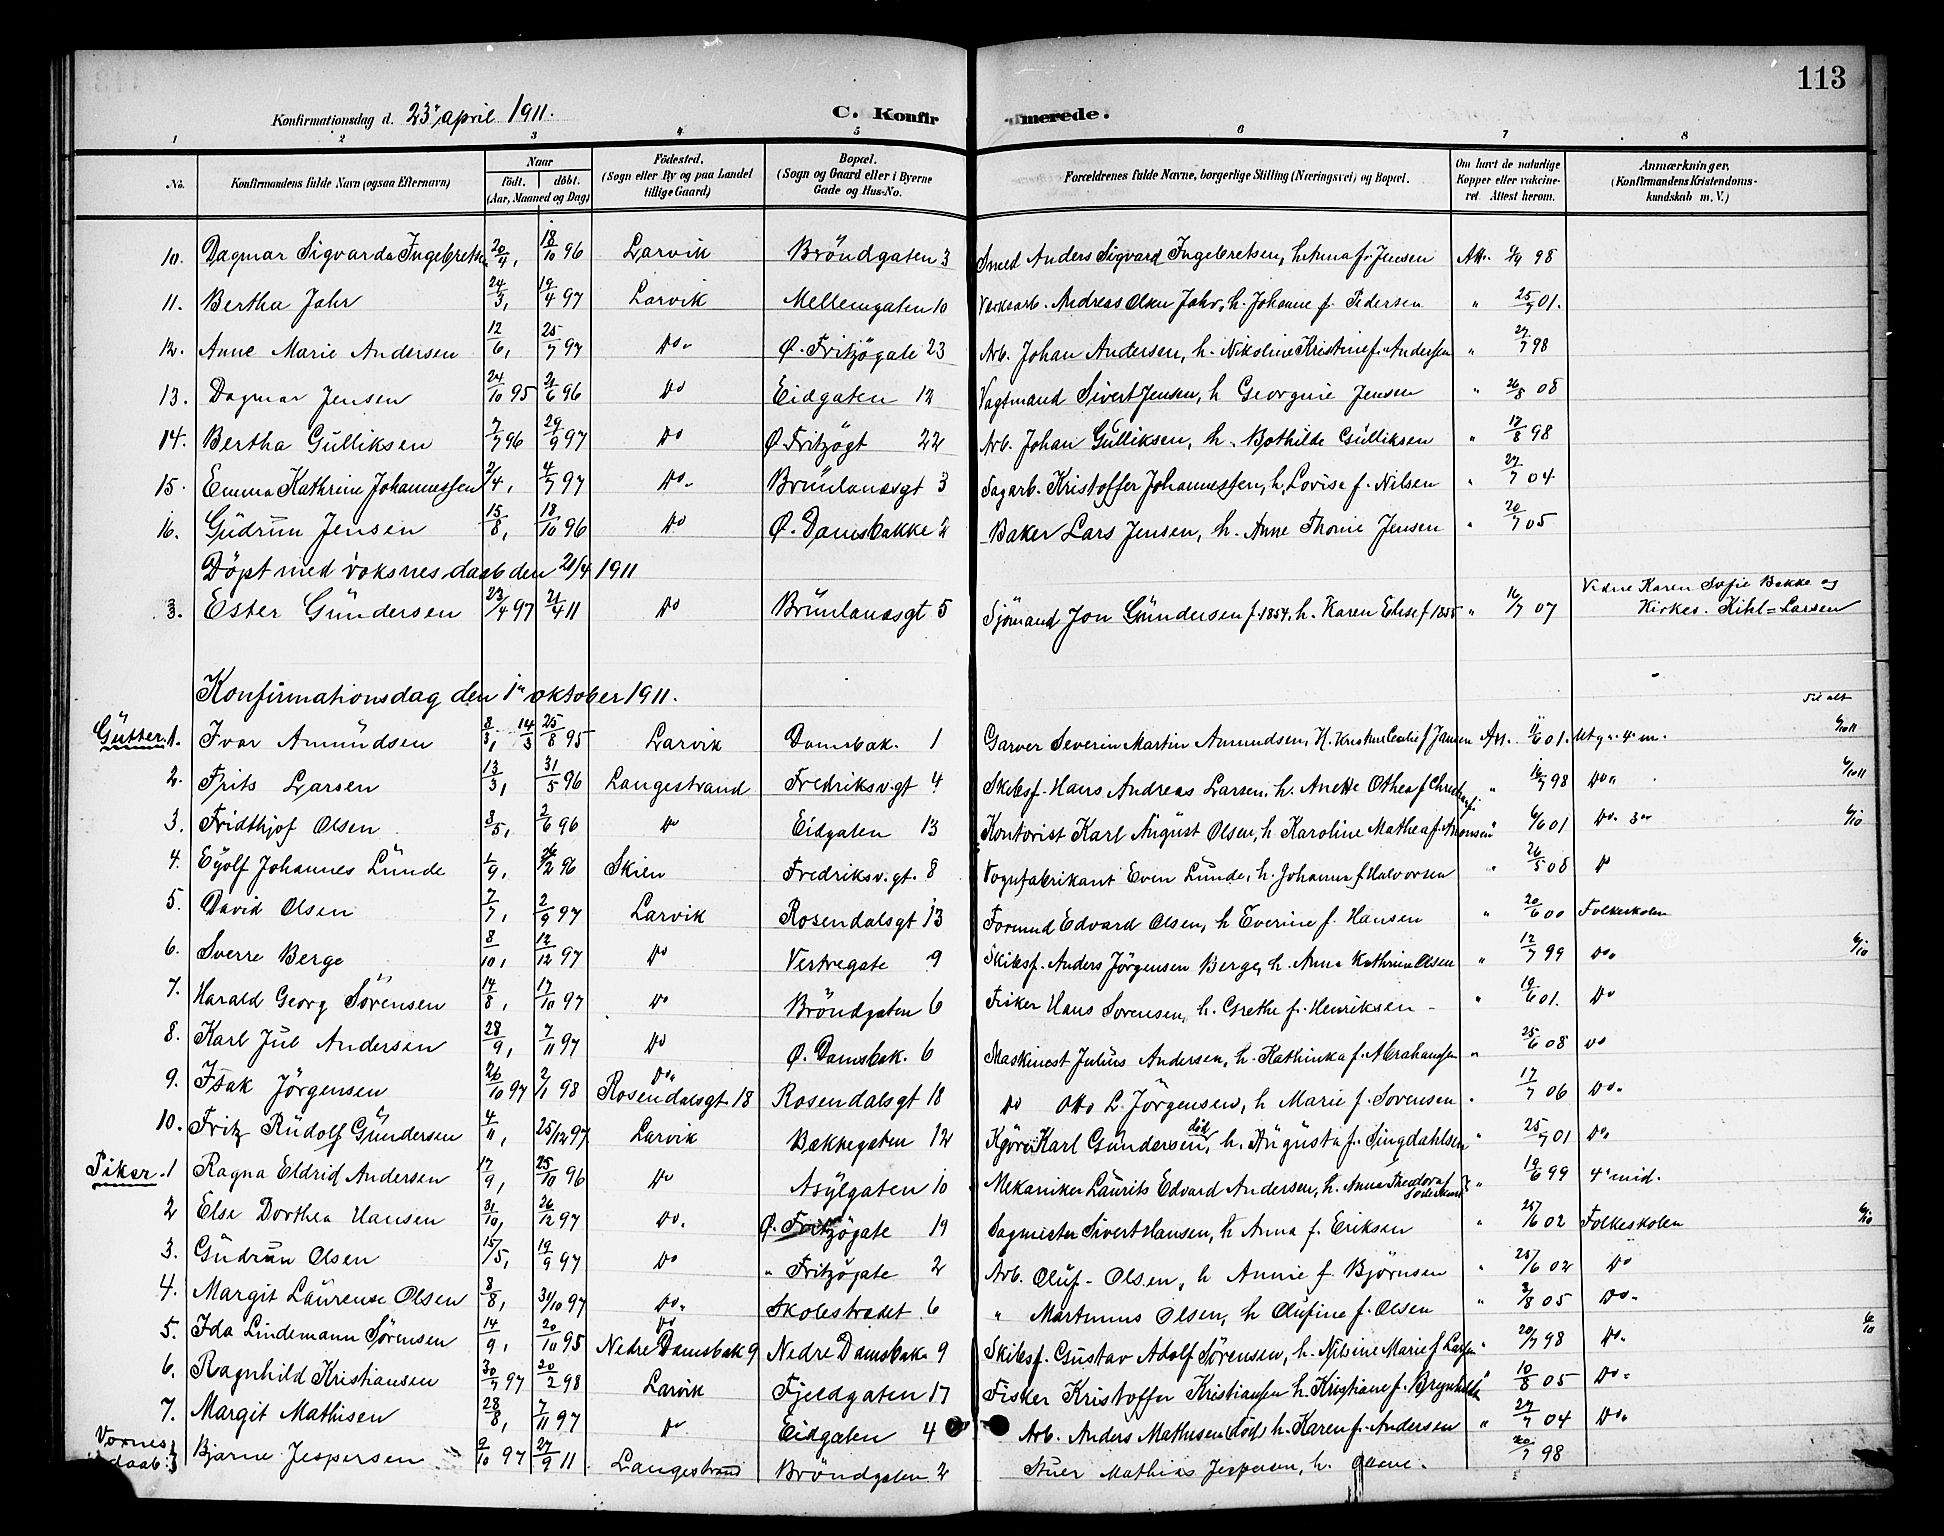 113
Konfirmationsdag d. 23' april 1911. C. Konfirmerede.
1 2 3 4 5 6 7 8
No. Konfirmandens fulde Navn (ogsaa Efternavn) Naar født. døbt. (Aar, Maaned og Dag) Fødested. (Sogn eller By og paa Landet tillige Gaard) Bopæl. (Sogn og Gaard eller i Byerne Gade og Hus-No. Forældrenes fulde Navne, borgerlige Stilling (Næringsvei) og Bopæl. Om havt de naturlige Kopper eller vaccineret. Attest herom. Anmærkninger, (Konfirmandens Kristendomskundskab m. V.)
10. Dagmar Sigvarda Ingebretsen 20/4, 18/10 96 Larvik Bröndgaten 3 Smed Anders Sigvard Ingebretsen, h. Anna f. Jensen Att. 98
11. Bertha Jahr 24/3, 19/4 97 Larvik Mellemgaten 10 Værksarb. Andreas Olsen Jahr, h. Johanne f. Pedersen " 25/7 01.
12. Anne Marie Andersen 12/6, 25/7 97 Do. Ø. Fritzögate 23 Arb. Johan Andersen, h. Nikoline Kristine f. Andersen " 27/7 98
13. Dagmar Jensen 24/10 95 21/6 96 Do Eidgaten 12 Vagtmand Sivert Jensen, h Georgine Jensen " 26/8 08
14. Bertha Gulliksen 7/7 96 29/9 97 Do Ø. Fritzögt 22 Arb. Johan Gulliksen, h. Bothilde Gulliksen " 17/8 98
15. Emma Kathrine Johannessen 2/4, 4/7 97 Do. Brunlanæsgt 3 Sagarb. Kristoffer Johannessen, h. Lovise f. Nilsen " 27/7 04
16. Gudrun Jensen 15/8, 18/10 96 Do Ø. Damsbakke 2 Baker Lars Jensen, h. Anne Thonie Jensen " 20/7 05
Döpt med voksnes daab den 21/4 1911
3. Ester Gundersen 23/4 97 21/4 11 Do Brunlanæsgt 5 Sjömand Jon Gundersen f. 1854, h. Karen Elise f 1855 " 16/7 07 Vidne Karen Sofie Bakke og
Kirkes. Kihl=Larsen
Konfirmationsdag den 1' oktober 1911.
Gutter. 1. Ivar Amundsen 8/3, 14/3 25/8 95 Larvik Damsbak. 1 Garver Severin Martin Amundsen, H. Kristine Cecilie f Jansen Att. 11/6 01. Utg. 4' m. 6/10 11
2. Frits Larsen 13/3, 31/5 96 Langestrand Fredriksv.gt 4 Skibsf. Hans Andreas Larsen, h. Anette Othea f " 16/7 98 Do. 6/10 11
3. Fridthjof Olsen 3/5, 2/6 96 Do Eidgaten 13 Kontorist Karl August Olsen, h Karoline Mathea f. Amonsen " 6/6 01 Do. 3' 6/10
4. Eyolf Johannes Lunde 1/9, 26/12 96 Skien Fredriksv.gt. 8 Vognfabrikant Even Lunde, h. Johanna f Halvorsen " 26/5 08 Do
5. David Olsen 7/7, 2/9 97 Larvik Rosendalsgt 13 Formand Edvard Olsen, h Everine f. Hansen " 20/6 00 Folkeskolen
6. Sverre Berge 8/10, 12/12 97 Do Vestregate 9 Skibsf. Anders Jörgensen Berge, h. Anna Kathrine Olsen " 12/7 99 Do. 6/10
7. Harald Georg Sörensen 14/8, 17/10 97 Do Bröndgaten 6 Fisker Hans Sorensen, h. Grethe f. Henriksen " 19/6 01. Do
8. Karl Jul Andersen 28/9, 7/11 97 Do Ø. Damsbak. 6 Maskinest Julius Andersen, h. Kathinka f. Abrahamsen " 25/6 08 Do
9. Isak Jörgensen 26/10 97 2/1 98 Do. Rosendalsgt 18 Rosendalsgt 18 Do Otto L. Jörgensen, h Marie f. Sorensen " 17/7 06 Do.
10. Fritz Rudolf Gundersen 4/11, 25/12 97 Larvik Bækkegaten 12 Kjörer Karl Gundersen död, h. Augusta f. Lingdahlsen " 25/7 01 Do
Piker. 1 Ragna Eldrid Andersen 17/9, 25/10 96 Do Asylgaten 10 Mekaniker Laurits Edvard Andersen, h. Anna Theodora f " 19/6 99 4' mid.
2 Else Dorthea Hansen 31/10, 26/12 97 Do. Ø. Fritzögate 19 Sagmester Sivert Hansen, h Anna f. Eriksen " 25/6 02 Folkeskolen 6/10
3. Gudrun Olsen 15/5, 19/9 97 Do " Fritzögate 2 Arb. Oluf Olsen, h Annie f. Björnsen " 25/6 02 Do
4. Margit Laurense Olsen 8/8, 31/10 97 Do. Skolestrædet 6 " Martinus Olsen, h Olufine f. Olsen " 3/8 05 Do.
5. Ida Lindemann Sörensen 14/9, 20/10 95 Do Nedre Damsbak 9 Nedre Damsbak 9 Skibsf. Gustav Adolf Sörensen, h. Nilsine Marie f Larsen " 20/7 98 Do. 6/10
6. Ragnhild Kristiansen 30/7 97 20/2 98 Larvik Fjeldgaten 17 Fisker Kristoffer Kristiansen h. Kristiane f. " 10/8 05 Do.
7. Margit Mathisen 28/8, 7/11 97 Do Eidgaten 4 Arb. Anders Mathisen död h. Karen f. Andersen " 27/7 04 Do.
Voxnes daab. 3 Bjarne Jespersen 9/10 97 27/9 11 Langestrand Bröndgaten 2 Stuer Mathias Jespersen, h. 20/7 98